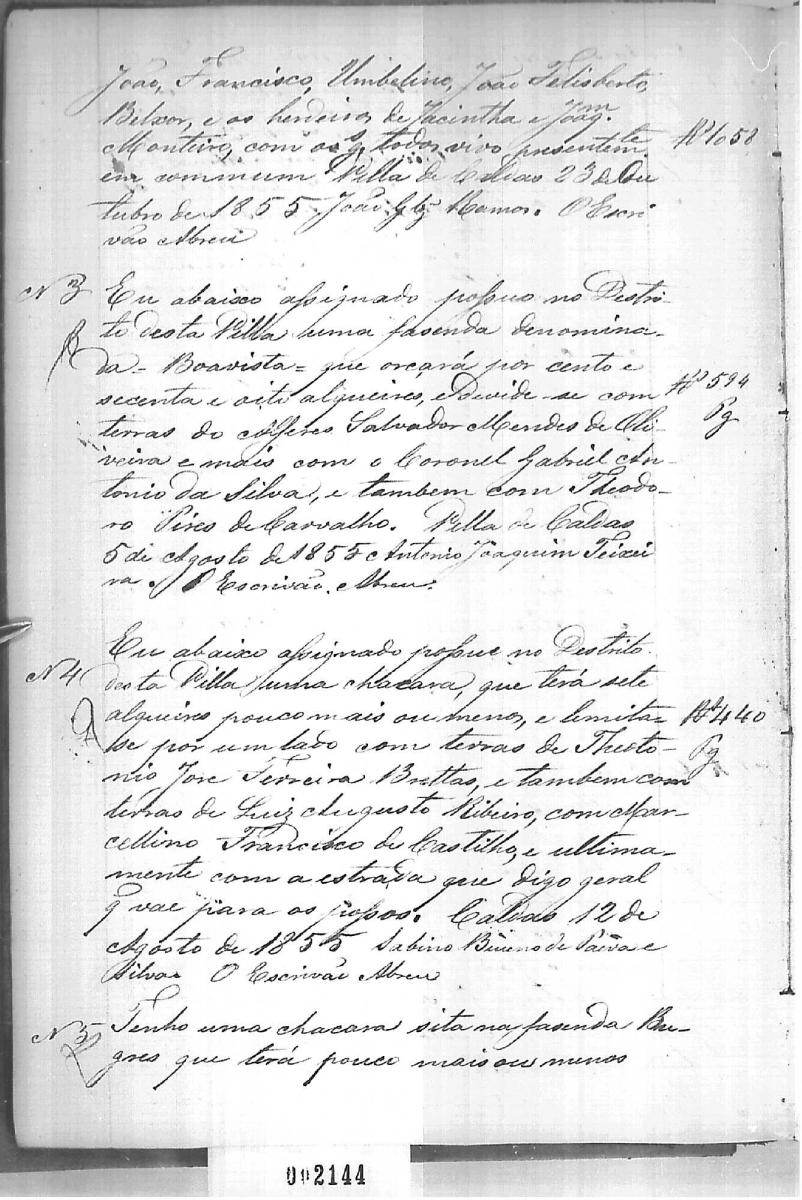 João, Francisco, Umbelino, João Felisberto,
Belxor, e os herdeiros de Jacintha e Joaqm.
Monteiro, com os qs. todos vivo presentemte. Rs 1058
em commum Villa de Caldas 23 de Ou
tubro de 1855 João Glz Ramos. O Escri
vão Abreu
N 3 Eu abaixo assignado possuo no Destri-
to desta Villa uma fasenda denomina-
da = Boavista = que orçará por cento e
secenta e oito alqueires, e Devide-se com Rs 594
terras do Alferes Salvador Mendes de Oli- Pg
veira e mais com o Coronel Gabriel An-
tonio da Silva, e tambem com Theodo-
ro Pires de Carvalho. Villa de Caldas
5 de Agosto de 1855 Antonio Joaquim Teixei
ra. O Escrivão. Abreu.
Eu abaixo assignado possue no Destrito
N 4 desta Villa uma chacara, que terá sete
alqueires pouco mais ou menos, e lemita= Rs 440
se por um lado com terras de Theoto- Pg
nio Jose Ferreira Brettas, e tambem com
terras de Luiz Augusto Ribeiro, com Mar-
cellino Francisco de Castilho, e ultima-
mente com a estrada que digo geral
q̃ vae para os possos. Caldas 12 de
Agosto de 1855 Sabino Bueno de Paiva e
Silva. O Escrivão Abreu
N 5 Tenho uma chacara sita na fasenda Bu-
gres que terá pouco mais ou menos
002144